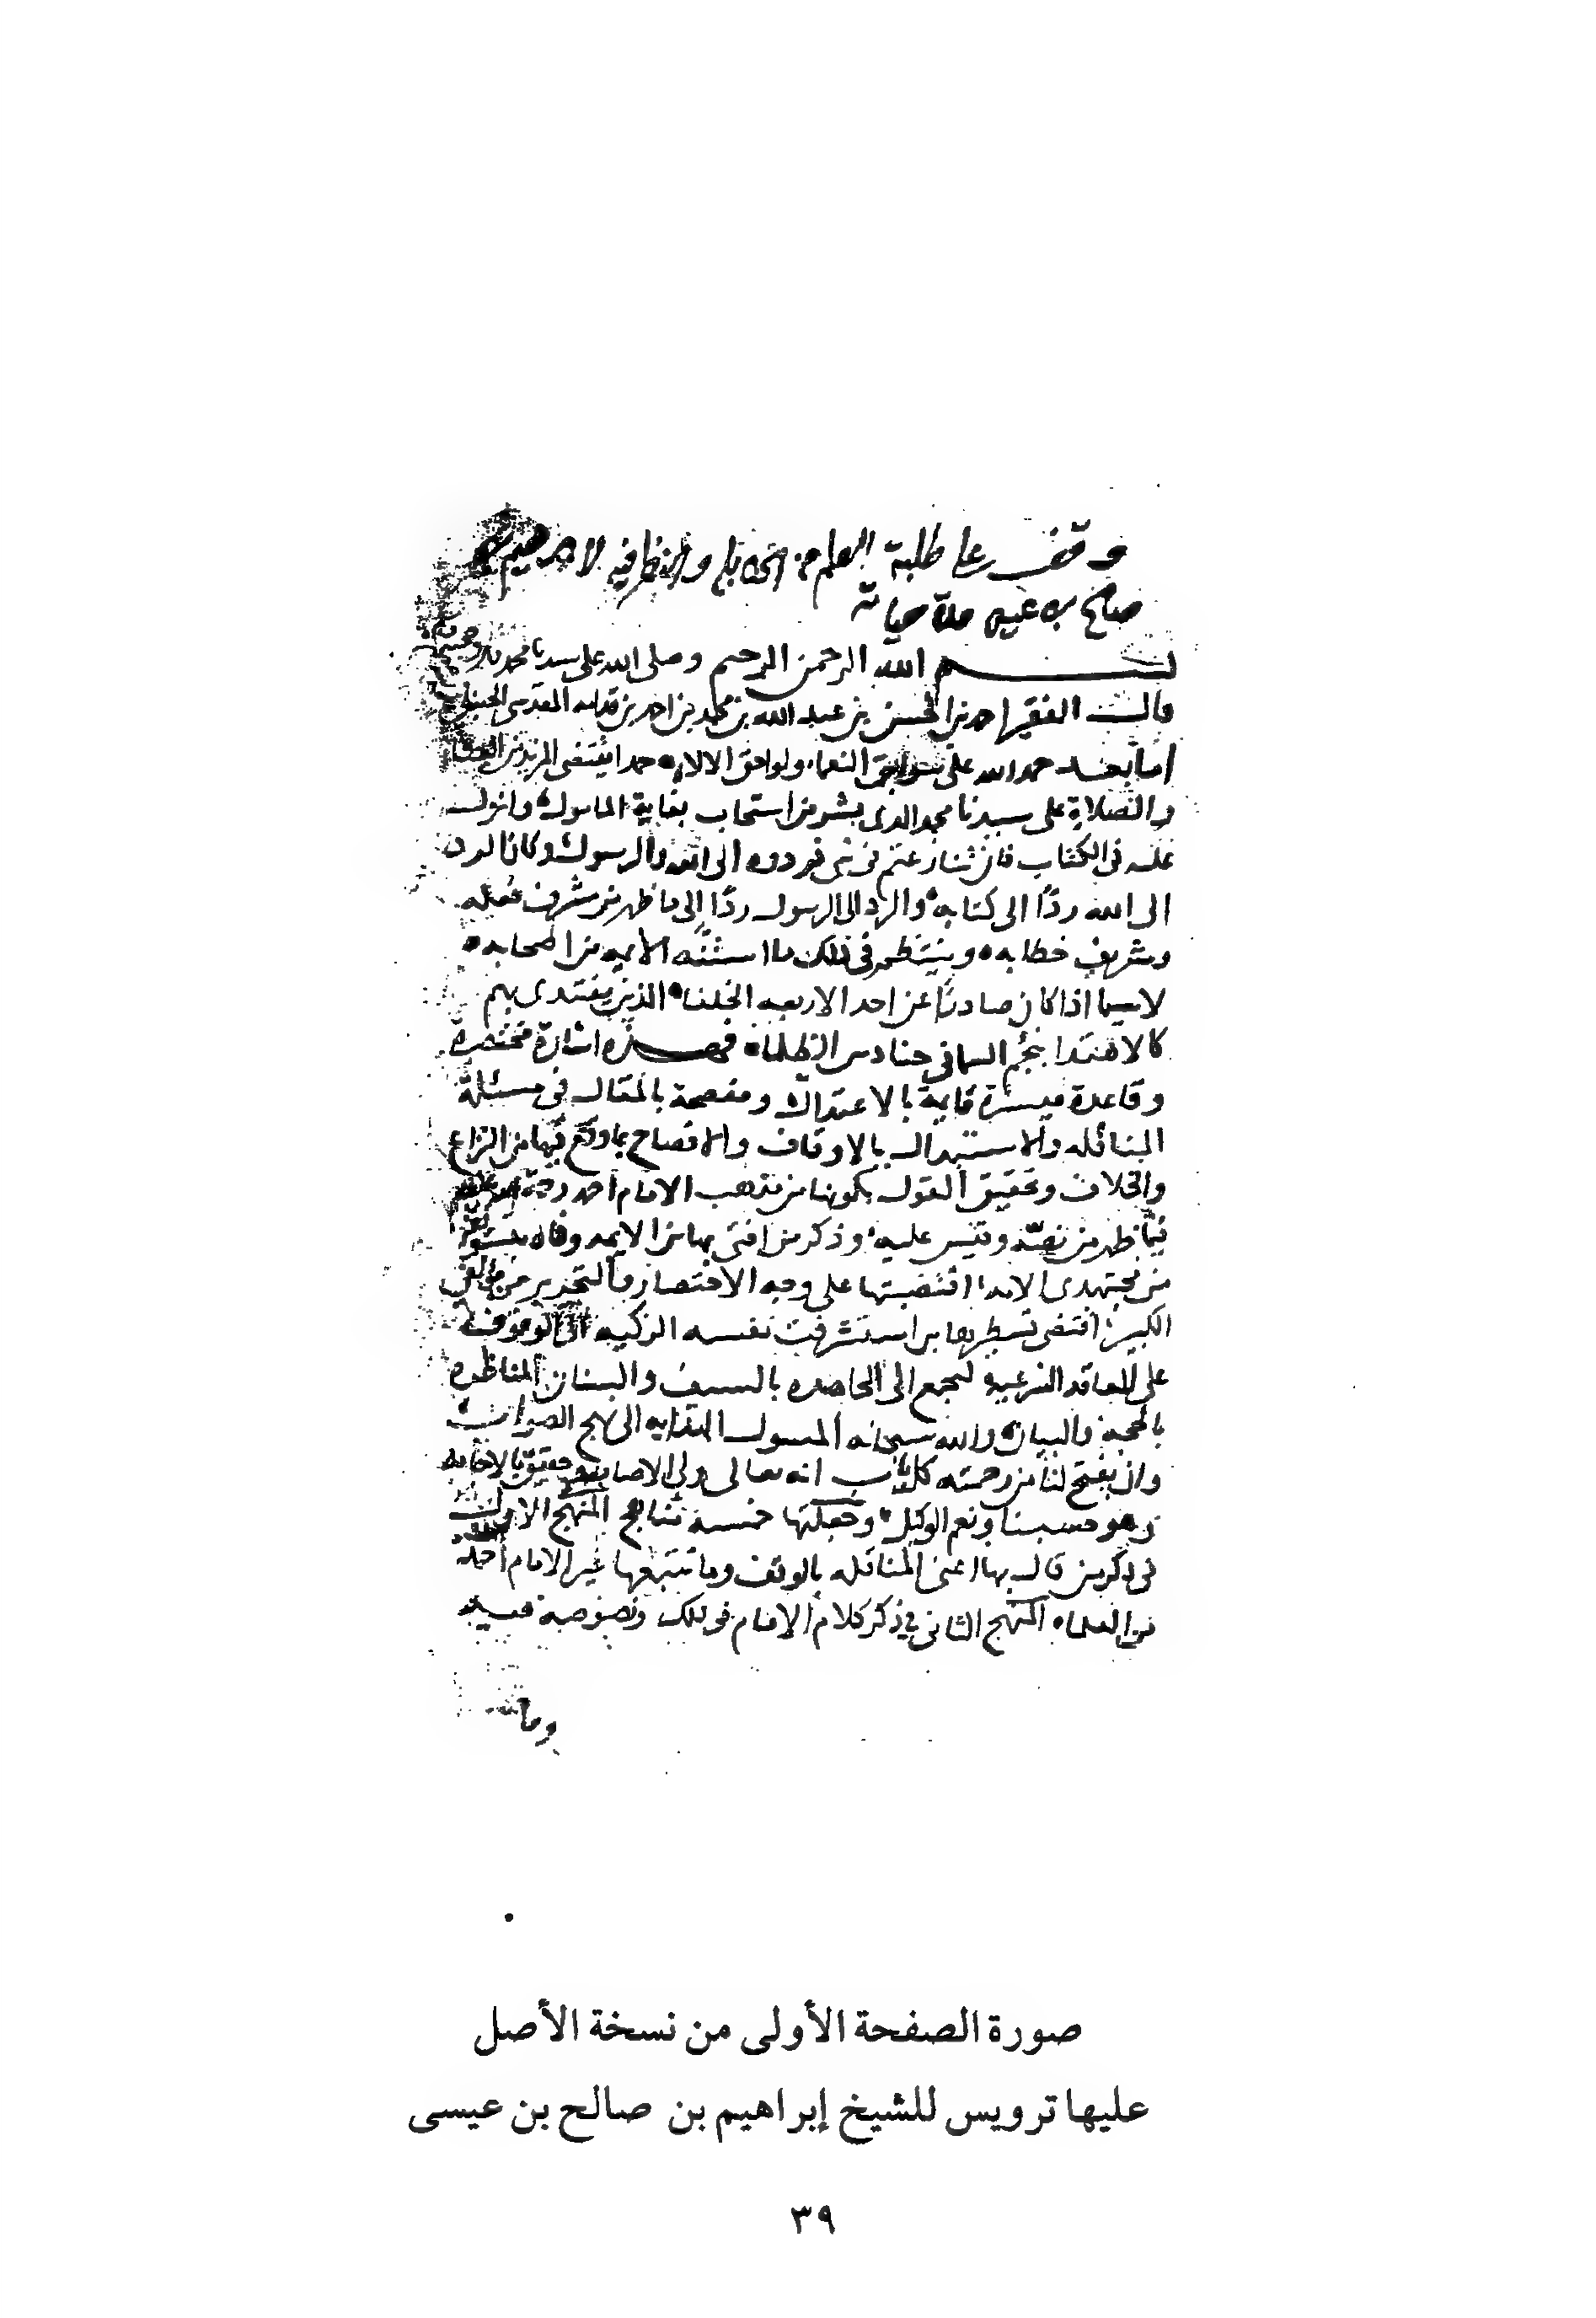 وقف على طلبة العلم من الحنابلة والنظر فيه لابرهيم بن
صالح بن عيسى مدة حياته
بسم الله الرحمن الرحيم وصلى الله على سيدنا محمد
قال الفقير احمد بن الحسن بن عبد الله بن محمد بن احمد بن قدامه المقدسي الحنبلي
اما بعد حمد الله على سوابق النعماء ولواحق الالاء حمدا يقتضى المزيد من
والصلاة على سيدنا محمد الذى بشر من استجاب بغاية المامول وانزل
عليه فى الكتاب فان تنازعتم فى شى فردوه الى الله والرسول وكان الرد
الى الله ردًا الى كتابه والرد الى الرسول ردًا الى ما ظهر من مشرف فعله
وشريف خطابه وينتظم فى ذلك ما استنه الايمه من الصحابه
لاسيما اذا كان صادرًا عن احد الاربعه الخلفاء الذين يقتدى بهم
كالاهتدا بنجم السما فى حنادس الظلماء فهذه اشارة مختصرة
وقاعدة ميسرة قايمة بالاعتدال ومفصحة بالمقال فى مسئلة
المناقله والاستبدال بالاوقاف والافصاح بما وقع فيها من النزاع
والخلاف وتحقيق القول بكونها من مذهب الامام احمد
فيما ظهر من نصه وقيس عليه وذكر من افتى بها من الايمه وفاه
من مجتهدى الامه اقتضبتها على وجه الاختصار والتحرير من مؤلفى
الكبير اقتضى تسطيرها من استشرفت نفسه الزكيه الى الوقوف
على المعاقد الشرعيه ليجمع الى المحاصره بالسيف والسنان المناظره
بالحجة والبيان والله سبحانه المسول الهدايه الى نهج الصواب
وان يفتح لنا من رحمته كل باب انه تعالى ولى الاصابه حقيق بالاجابه
وهو حسبنا ونعم الوكيل وجعلتها خمسة مناهج المنهج الاول
فى ذكر من قال بها اعنى المناقله بالوقف وما تتبعها غير الامام احمد
من العلماء المنهج الثانى فى ذكر كلام الامام فى ذلك ونصوصه فيه
وما
صورة الصفحة الأولى من نسخة الأصل
عليها ترويس للشيخ إبراهيم بن صالح بن عيسى
٣٩